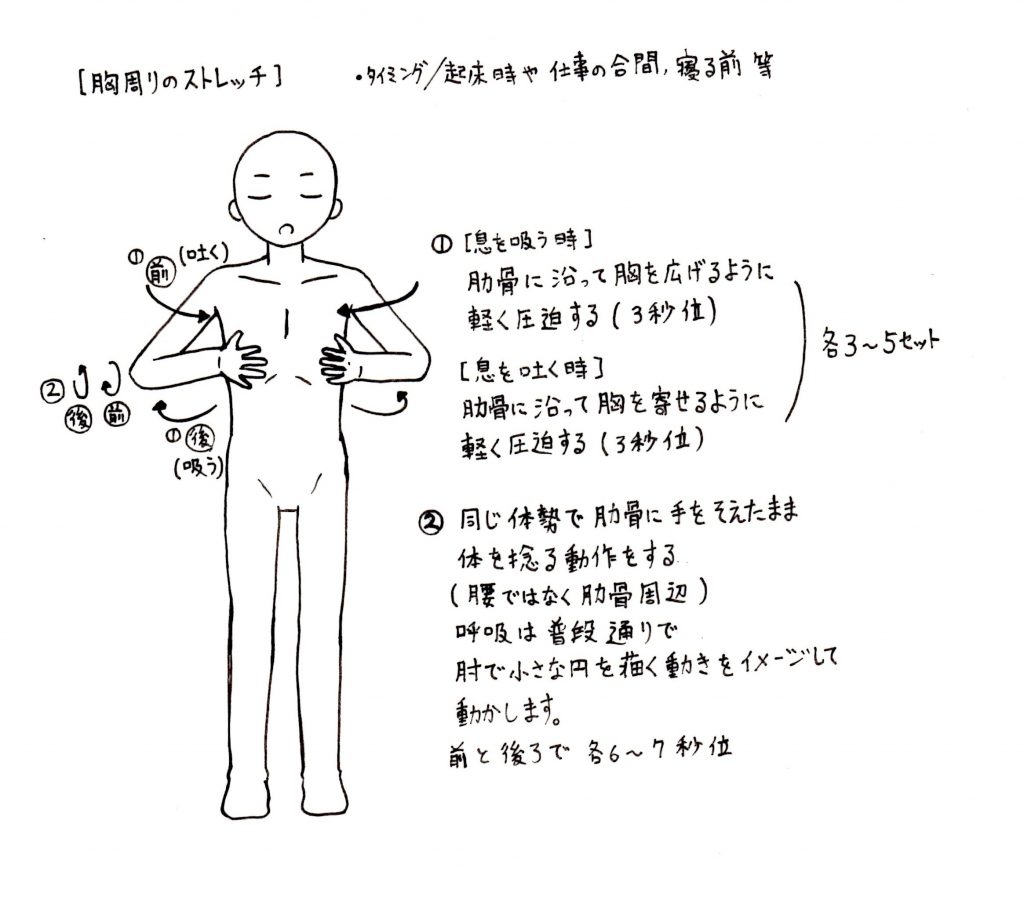 [胸周りのストレッチ]
・タイミング/起床時や仕事の合間,寝る前 等
① 前 (吐く)
② 後 前
① 後
(吸う)
① [息を吸う時]
肋骨に沿って胸を広げるように
軽く圧迫する(3秒位)
[息を吐く時]
肋骨に沿って胸を寄せるように
軽く圧迫する(3秒位)
各3〜5セット
② 同じ体勢で肋骨に手をそえたまま
体を捻る動作をする
(腰ではなく肋骨周辺)
呼吸は普段通りで
肘で小さな円を描く動きをイメージして
動かします。
前と後ろで 各6〜7秒位